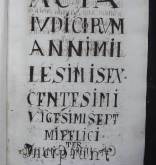 ACTA
IVDICIRVM
ANNIMIL
LESIMISEX
CENTESIMI
VIGESIMISEPT
MIFELICI
TER